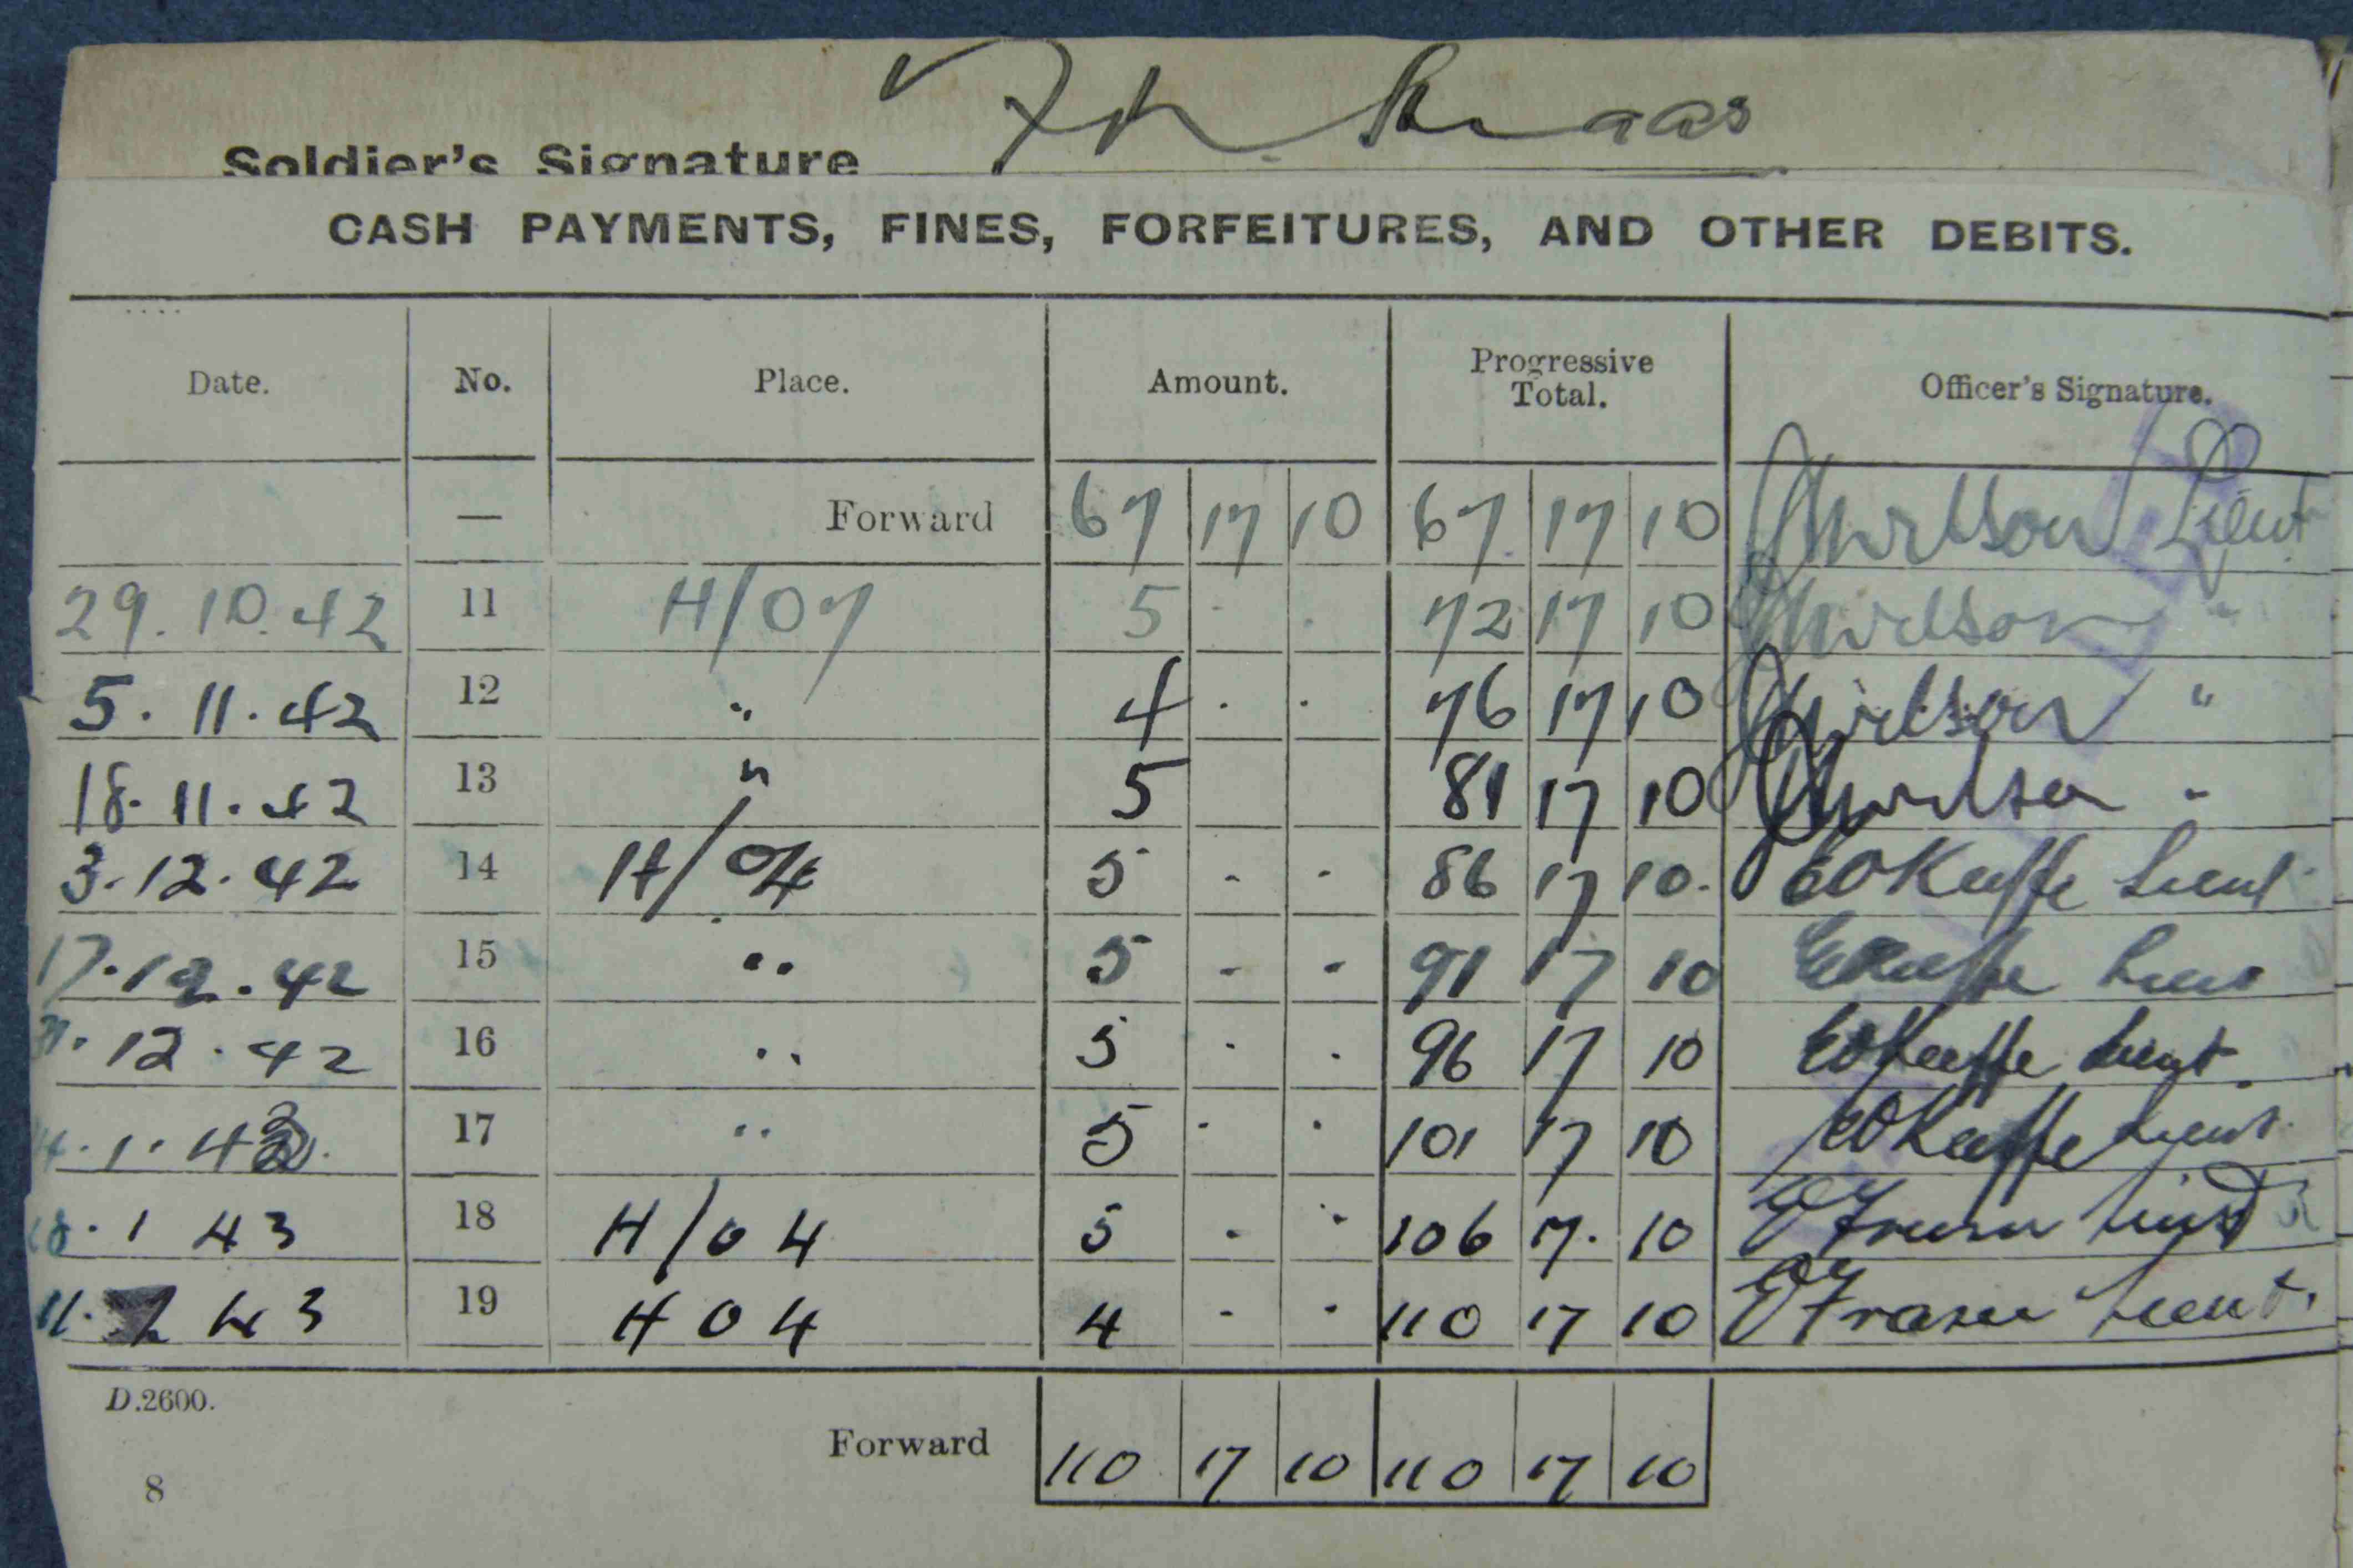 Soldier's Signature
CASH PAYMENTS, FINES, FORFEITURES, AND OTHER DEBITS.
Date. No. Place. Amount. Progressive Total. Officer's Signature.
— Forward 67 17 10 67 17 10 Lieut
29.10.42 11 H/07 5 . . 72 17 10 "
5.11.42 12 " 4 . . 76 17 10 "
18.11.42 13 " 5 81 17 10 "
3.12.42 14 H/04 5 - - 86 17 10. EOKeeffe Lieut
17.12.42 15 " 5 - - 91 17 10 EOKeeffe Lieut
31.12.42 16 " 5 . . 96 17 10 EOKeeffe Lieut.
.1.43 17 " 5 . . 101 17 10 EOKeeffe Lieut.
18.1 43 18 H/04 5 - - 106 17. 10 Fraser Lieut
11. 2 43 19 H04 4 - - 110 17 10 Fraser Lieut.
D.2600.
Forward 110 17 10 110 17 10
8